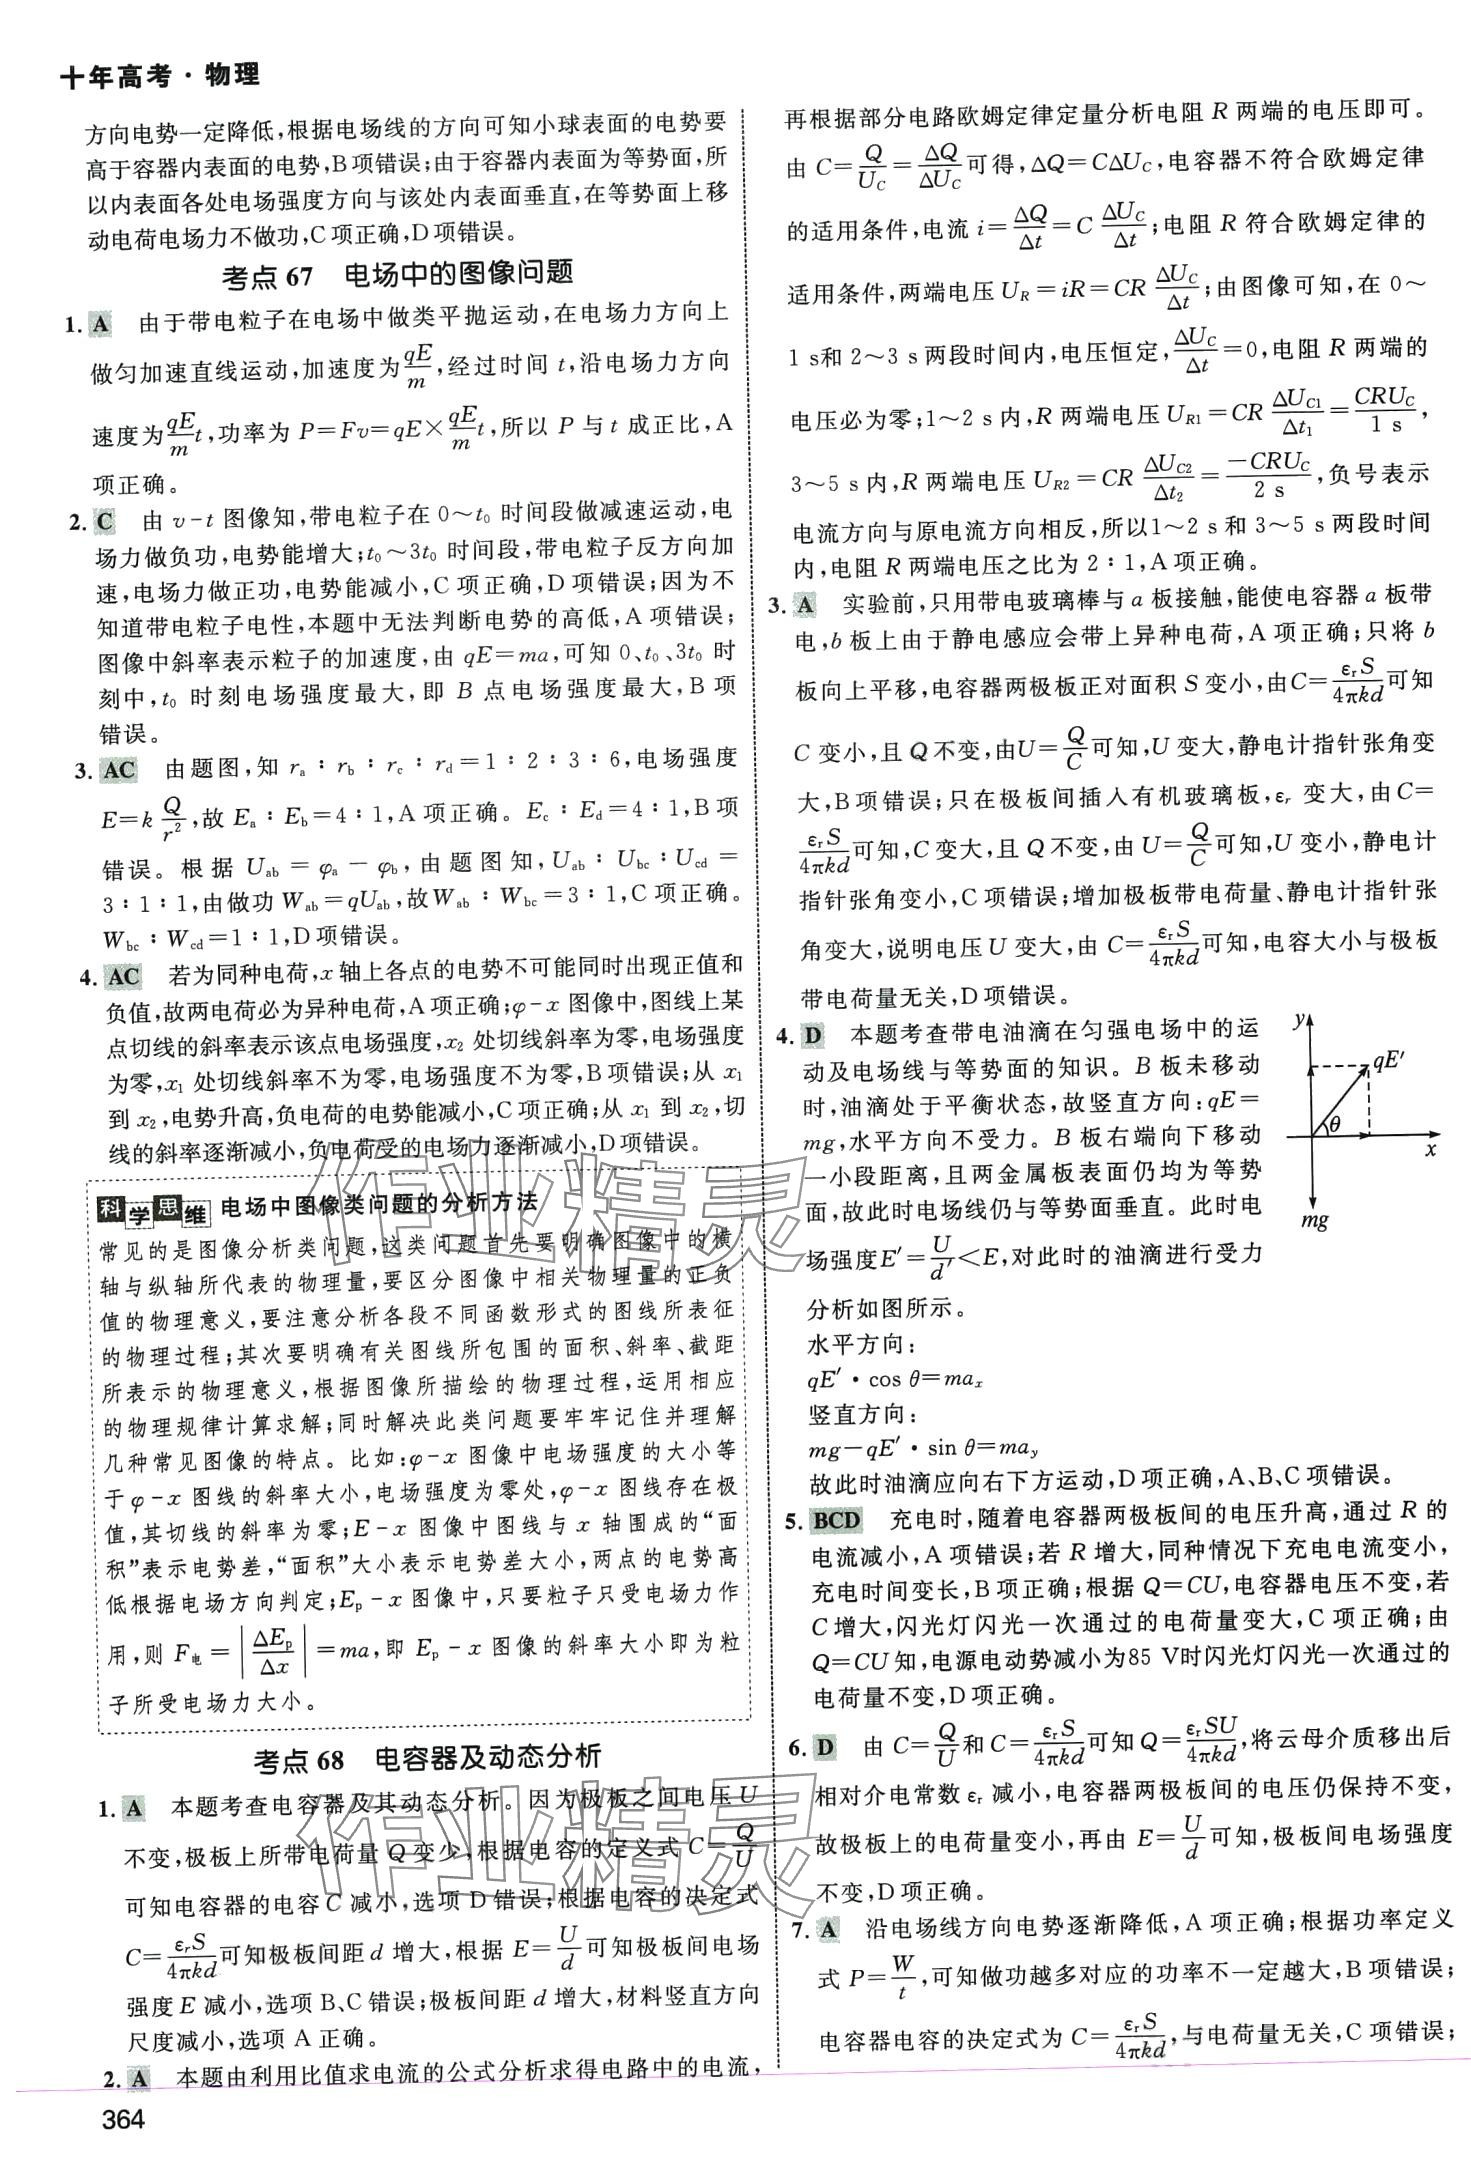 十年高考·物理
方向电势一定降低,根据电场线的方向可知小球表面的电势要
高于容器内表面的电势,B项错误;由于容器内表面为等势面,所
以内表面各处电场强度方向与该处内表面垂直,在等势面上移
动电荷电场力不做功,C项正确,D项错误。
考点 67 电场中的图像问题
1. A 由于带电粒子在电场中做类平抛运动,在电场力方向上
做匀加速直线运动,加速度为qE/m,经过时间 t,沿电场力方向
速度为qE/m t,功率为 P=Fv=qE×qE/m t,所以 P 与 t 成正比,A
项正确。
2. C 由 v-t 图像知,带电粒子在 0～t₀ 时间段做减速运动,电
场力做负功,电势能增大;t₀～3t₀ 时间段,带电粒子反方向加
速,电场力做正功,电势能减小,C项正确,D项错误;因为不
知道带电粒子电性,本题中无法判断电势的高低,A项错误;
图像中斜率表示粒子的加速度,由 qE=ma,可知 0、t₀、3t₀ 时
刻中,t₀ 时刻电场强度最大,即 B 点电场强度最大,B项
错误。
3. AC 由题图,知 rₐ∶r_b∶r_c∶r_d=1∶2∶3∶6,电场强度
E=k Q/r²,故 Eₐ∶E_b=4∶1,A项正确。E_c∶E_d=4∶1,B项
错误。根据 U_ab=φₐ-φ_b,由题图知,U_ab∶U_bc∶U_cd=
3∶1∶1,由做功 W_ab=qU_ab,故W_ab∶W_bc=3∶1,C项正确。
W_bc∶W_cd=1∶1,D项错误。
4. AC 若为同种电荷,x 轴上各点的电势不可能同时出现正值和
负值,故两电荷必为异种电荷,A项正确;φ-x 图像中,图线上某
点切线的斜率表示该点电场强度,x₂ 处切线斜率为零,电场强度
为零,x₁ 处切线斜率不为零,电场强度不为零,B项错误;从 x₁
到 x₂,电势升高,负电荷的电势能减小,C项正确;从 x₁ 到 x₂,切
线的斜率逐渐减小,负电荷受的电场力逐渐减小,D项错误。
科学思维 电场中图像类问题的分析方法
常见的是图像分析类问题,这类问题首先要明确图像中的横
轴与纵轴所代表的物理量,要区分图像中相关物理量的正负
值的物理意义,要注意分析各段不同函数形式的图线所表征
的物理过程;其次要明确有关图线所包围的面积、斜率、截距
所表示的物理意义,根据图像所描绘的物理过程,运用相应
的物理规律计算求解;同时解决此类问题要牢牢记住并理解
几种常见图像的特点。比如:φ-x 图像中电场强度的大小等
于 φ-x 图线的斜率大小,电场强度为零处,φ-x 图线存在极
值,其切线的斜率为零;E-x 图像中图线与 x 轴围成的“面
积”表示电势差,“面积”大小表示电势差大小,两点的电势高
低根据电场方向判定;Eₚ-x 图像中,只要粒子只受电场力作
用,则 F电=|ΔEₚ/Δx|=ma,即 Eₚ-x 图像的斜率大小即为粒
子所受电场力大小。
考点 68 电容器及动态分析
1. A 本题考查电容器及其动态分析。因为极板之间电压 U
不变,极板上所带电荷量 Q 变少,根据电容的定义式 C=Q/U
可知电容器的电容 C 减小,选项 D 错误;根据电容的决定式
C=εᵣS/4πkd可知极板间距 d 增大,根据 E=U/d可知极板间电场
强度 E 减小,选项 B、C 错误;极板间距 d 增大,材料竖直方向
尺度减小,选项 A 正确。
2. A 本题由利用比值求电流的公式分析求得电路中的电流,
364
再根据部分电路欧姆定律定量分析电阻 R 两端的电压即可。
由 C=Q/U_C=ΔQ/ΔU_C可得,ΔQ=CΔU_C,电容器不符合欧姆定律
的适用条件,电流 i=ΔQ/Δt=C ΔU_C/Δt;电阻 R 符合欧姆定律的
适用条件,两端电压 U_R=iR=CR ΔU_C/Δt;由图像可知,在 0～
1 s和 2～3 s 两段时间内,电压恒定,ΔU_C/Δt=0,电阻 R 两端的
电压必为零;1～2 s 内,R 两端电压 U_R1=CR ΔU_C1/Δt₁=CRU_C/1 s,
3～5 s 内,R 两端电压 U_R2=CR ΔU_C2/Δt₂=-CRU_C/2 s,负号表示
电流方向与原电流方向相反,所以1～2 s 和 3～5 s 两段时间
内,电阻 R两端电压之比为 2∶1,A项正确。
3. A 实验前,只用带电玻璃棒与 a 板接触,能使电容器 a 板带
电,b 板上由于静电感应会带上异种电荷,A项正确;只将 b
板向上平移,电容器两极板正对面积 S 变小,由C=εᵣS/4πkd可知
C 变小,且 Q 不变,由U=Q/C可知,U 变大,静电计指针张角变
大,B项错误;只在极板间插入有机玻璃板,εᵣ 变大,由 C=
εᵣS/4πkd可知,C 变大,且 Q 不变,由U=Q/C可知,U 变小,静电计
指针张角变小,C项错误;增加极板带电荷量、静电计指针张
角变大,说明电压 U 变大,由 C=εᵣS/4πkd可知,电容大小与极板
带电荷量无关,D项错误。
4. D 本题考查带电油滴在匀强电场中的运
动及电场线与等势面的知识。B 板未移动
时,油滴处于平衡状态,故竖直方向:qE=
mg,水平方向不受力。B 板右端向下移动
一小段距离,且两金属板表面仍均为等势
面,故此时电场线仍与等势面垂直。此时电
场强度E′=U/d′<E,对此时的油滴进行受力
分析如图所示。
y
qE′
θ
x
mg
水平方向:
qE′·cos θ=maₓ
竖直方向:
mg-qE′·sin θ=ma_y
故此时油滴应向右下方运动,D项正确,A、B、C项错误。
5. BCD 充电时,随着电容器两极板间的电压升高,通过 R 的
电流减小,A项错误;若 R 增大,同种情况下充电电流变小,
充电时间变长,B项正确;根据 Q=CU,电容器电压不变,若
C 增大,闪光灯闪光一次通过的电荷量变大,C项正确;由
Q=CU 知,电源电动势减小为85 V时闪光灯闪光一次通过的
电荷量不变,D项正确。
6. D 由 C=Q/U和 C=εᵣS/4πkd可知 Q=εᵣSU/4πkd,将云母介质移出后
相对介电常数 εᵣ 减小,电容器两极板间的电压仍保持不变,
故极板上的电荷量变小,再由 E=U/d可知,极板间电场强度
不变,D项正确。
7. A 沿电场线方向电势逐渐降低,A项正确;根据功率定义
式 P=W/t,可知做功越多对应的功率不一定越大,B项错误;
电容器电容的决定式为 C=εᵣS/4πkd,与电荷量无关,C项错误;
作业精灵
作业精灵